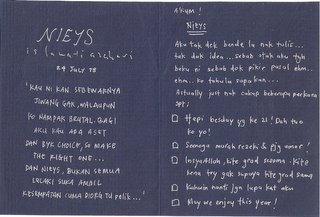 NIEYS
is lawati azehari
24 JULY 78
'KAU NI KAN SEBENARNYA
JIWANG GAK, WALAUPUN
KO NAMPAK BRUTAL. LAGI
AKU KAU ADA ASET
DAN BYK CHOICE, SO MAKE
THE RIGHT ONE...
DAN NIEYS, BUKAN SEMUA
LELAKI SUKA AMBIL
KESEMPATAN CUMA DIORG TU pelik...'
AKUM!
NIEYS
Aku tak dek benda la nak tulis...
tak dak idea... sebab otak aku tgh
beku ni sebab dok pikir pasal ehm..
ehm.. ko tahula sapa kan...
Actually just nak cakap beberapa perkara
spt;
Hepi besday yg ke 21! Dah tua
ko yo!
Semoga murah rezeki & pjg umor!
InsyaAllah, kite grad sesama. Kite
kena try gak supaya kite grad sama
Kahwin nanti jgn lupa kat aku
May we enjoy this year!